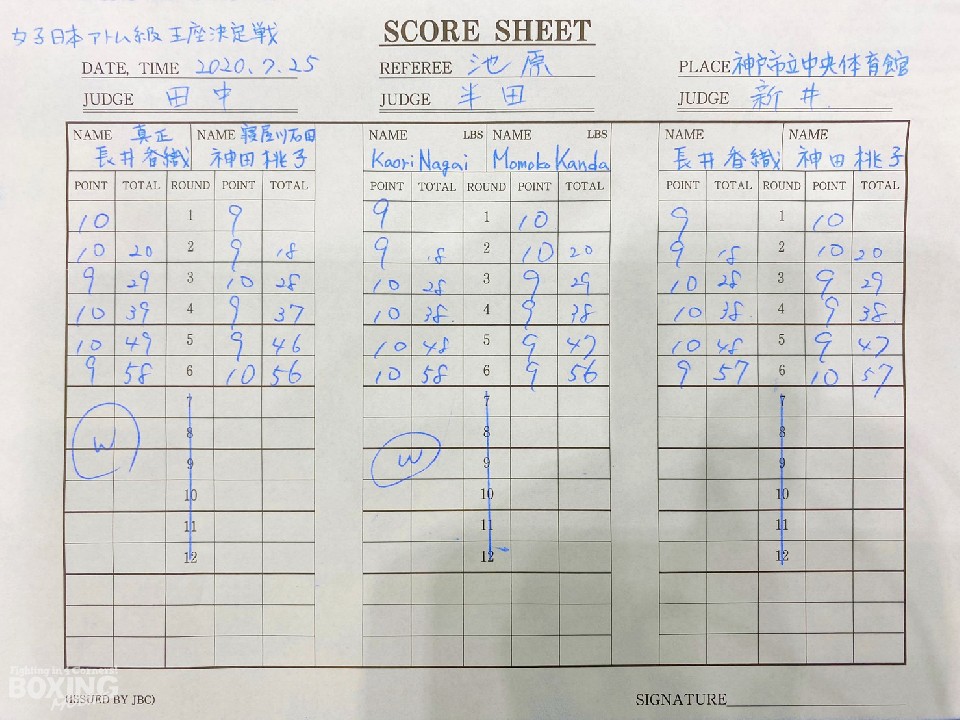 女子日本アトム級王座決定戦
SCORE SHEET
DATE, TIME 2020.7.25 REFEREE 池原 PLACE 神戸市立中央体育館
JUDGE 田中 JUDGE 半田 JUDGE 新井
NAME 真正 NAME 寝屋川石田 NAME LBS NAME LBS NAME NAME
長井香織 神田桃子 Kaori Nagai Momoko Kanda 長井香織 神田桃子
POINT TOTAL ROUND POINT TOTAL POINT TOTAL ROUND POINT TOTAL POINT TOTAL ROUND POINT TOTAL
10 1 9 9 1 10 9 1 10
10 20 2 9 18 9 18 2 10 20 9 18 2 10 20
9 29 3 10 28 10 28 3 9 29 10 28 3 9 29
10 39 4 9 37 10 38 4 9 38 10 38 4 9 38
10 49 5 9 46 10 48 5 9 47 10 48 5 9 47
9 58 6 10 56 10 58 6 9 56 9 57 6 10 57
7 7 7
W 8 8 8
9 W 9 9
10 10 10
11 11 11
12 12 12
Fighting in a Corner!
BOXING
(ISSUED BY JBC) SIGNATURE